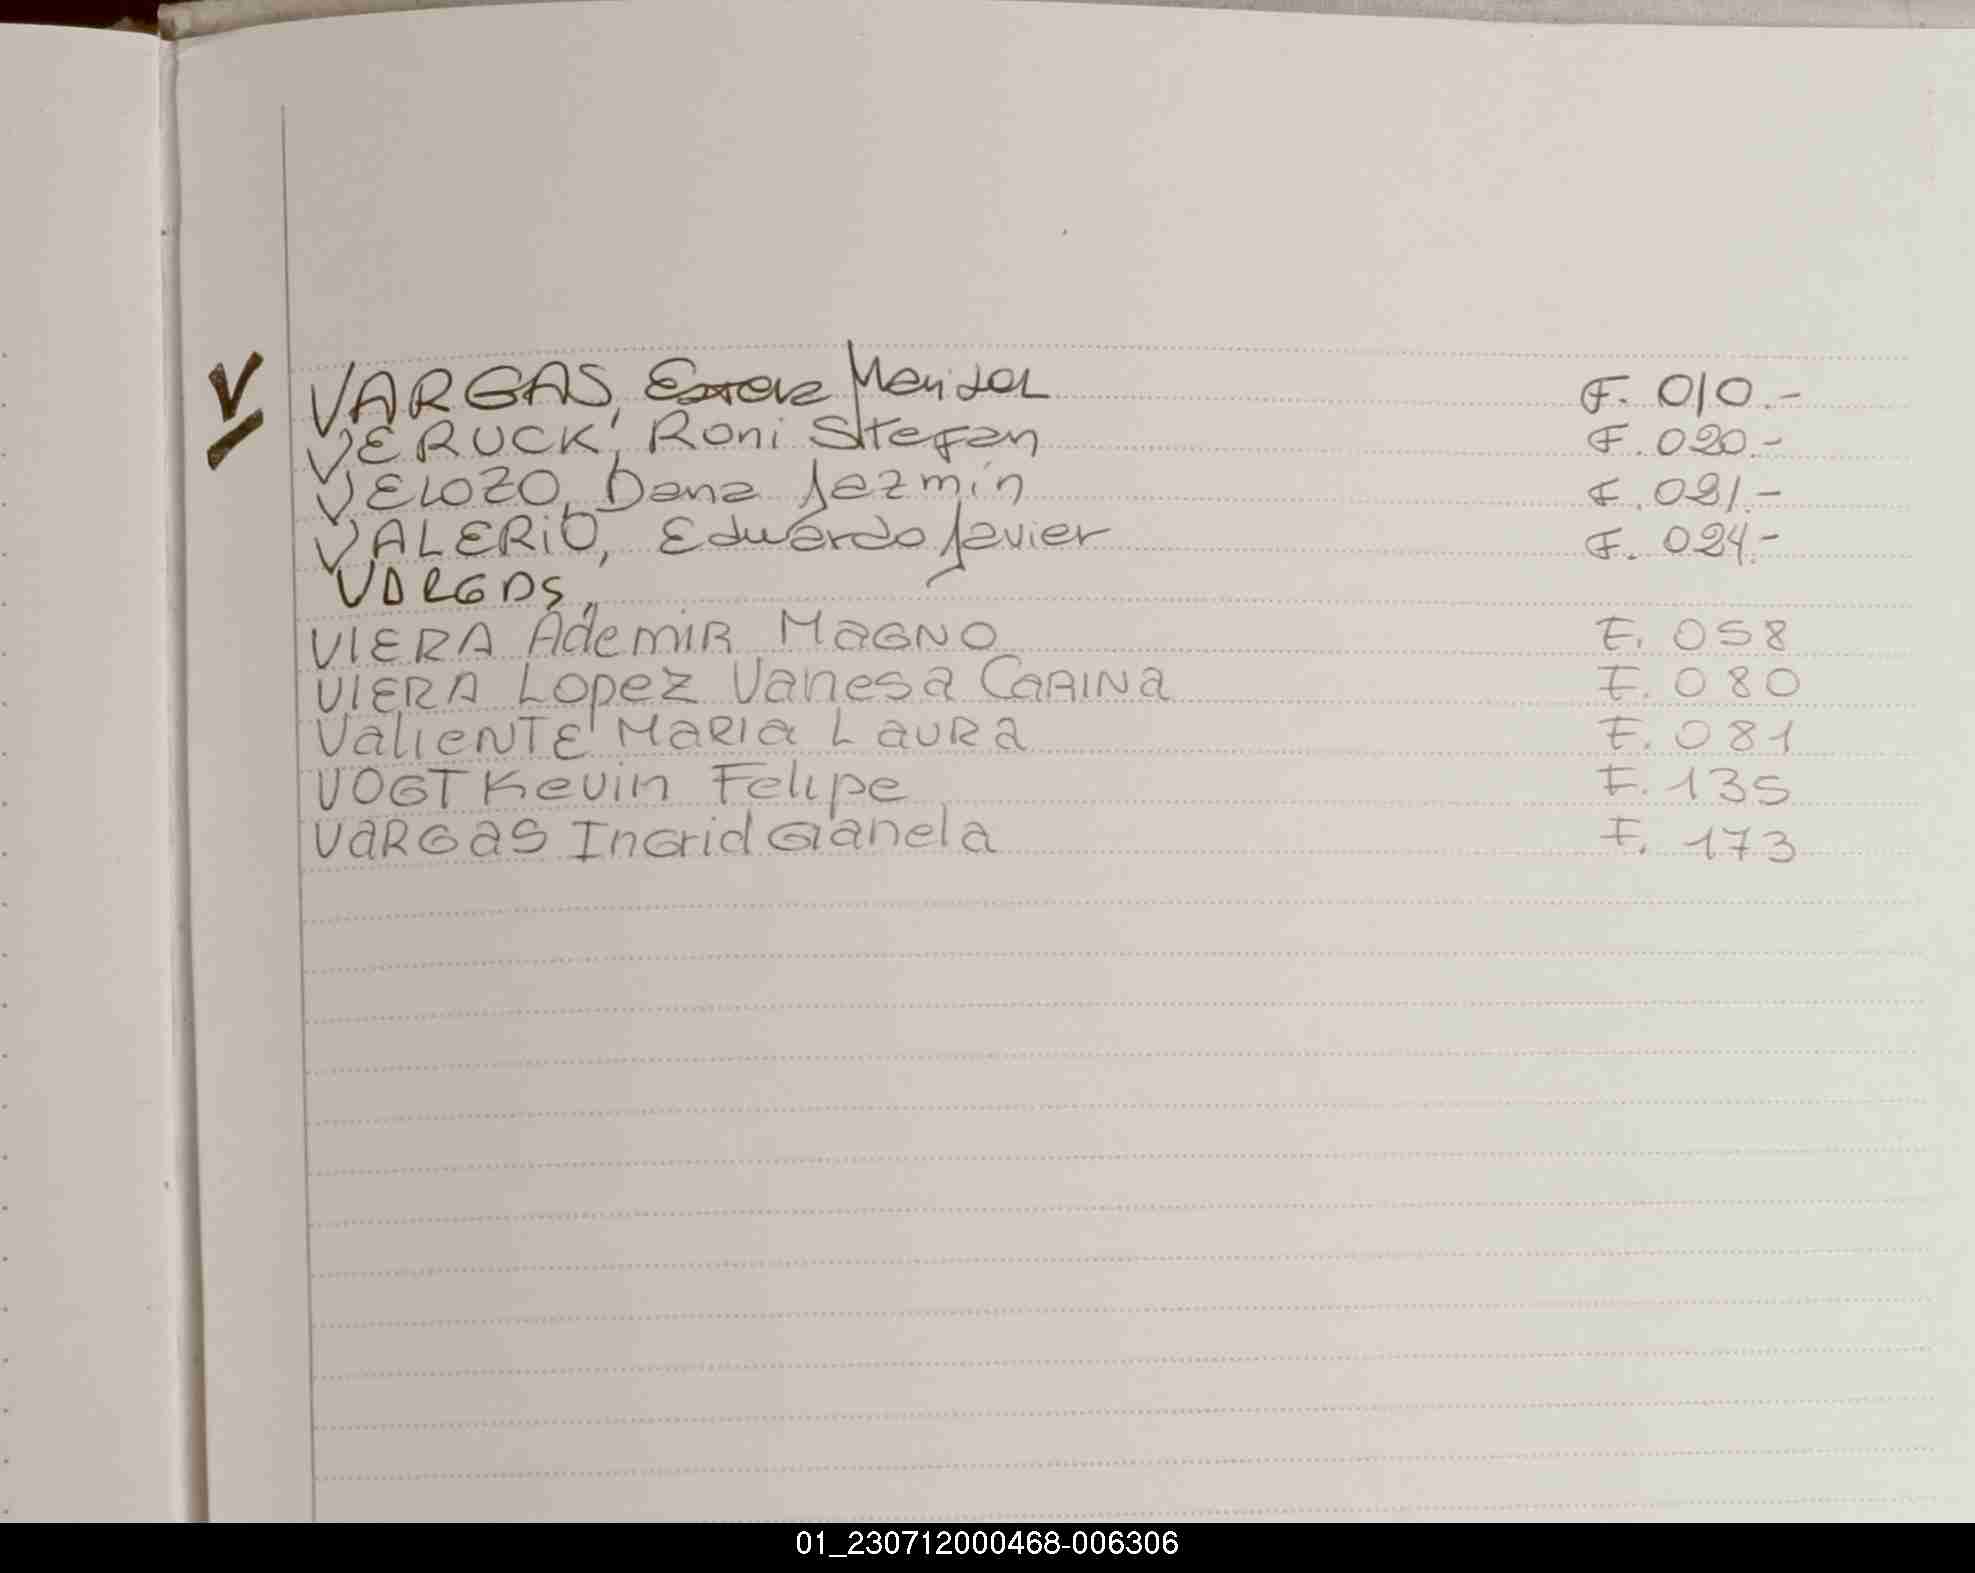 V
VARGAS, Marisol F. 010.-
VERUCK, Roni Stefan F. 020.-
VELOZO, Dana Jazmín F. 021.-
VALERIO, Eduardo Javier F. 024.-
VARGAS,
VIERA Ademir MAGNO F. 058
VIERA Lopez Vanesa CARINA F. 080
ValieNTE MARIA LAURA F. 081
VOGT Kevin Felipe F. 135
VARGAS INGrid Gianela F. 173
01_230712000468-006306